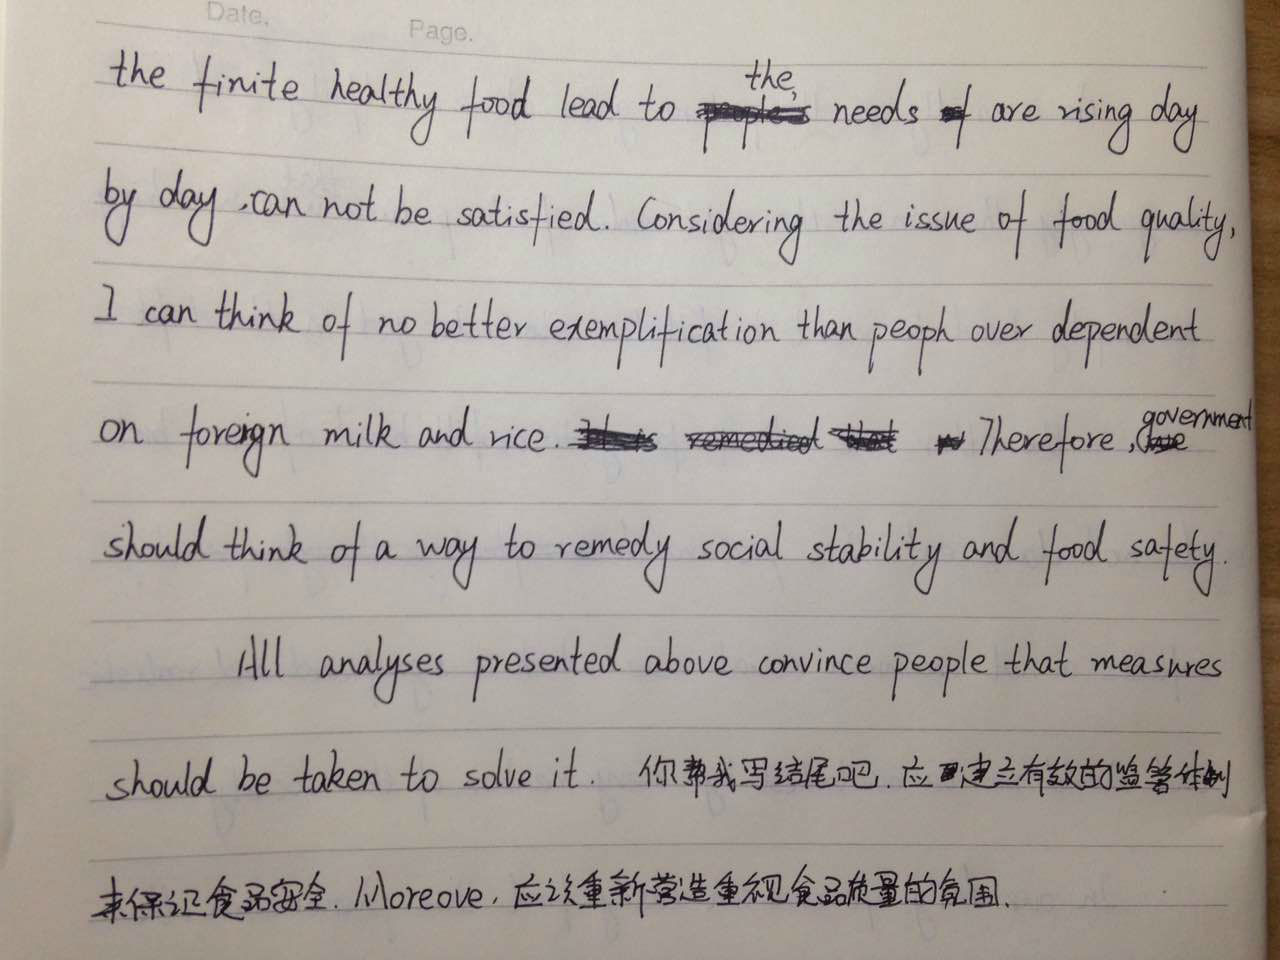 Date.
Page.
the
the finite healthy food lead to needs are rising day
by day .can not be satisfied. Considering the issue of food quality,
I can think of no better exemplification than peoph over dependent
government
on foreign milk and rice. It is remedied that Therefore,
should think of a way to remedy social stability and food safety.
All analyses presented above convince people that measures
should be taken to solve it. 你帮我写结尾吧. 应建立有效的监管体制
来保证食品安全. Moreove, 应该重新营造重视食品质量的氛围.